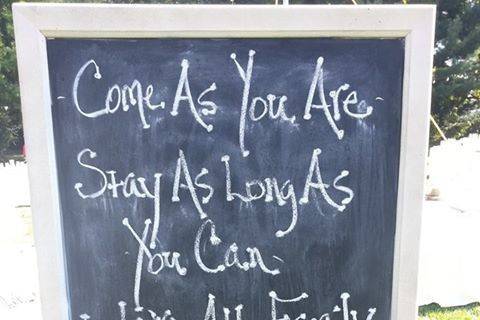 -Come As You Are-
Stay As Long As
You Can-
All Family